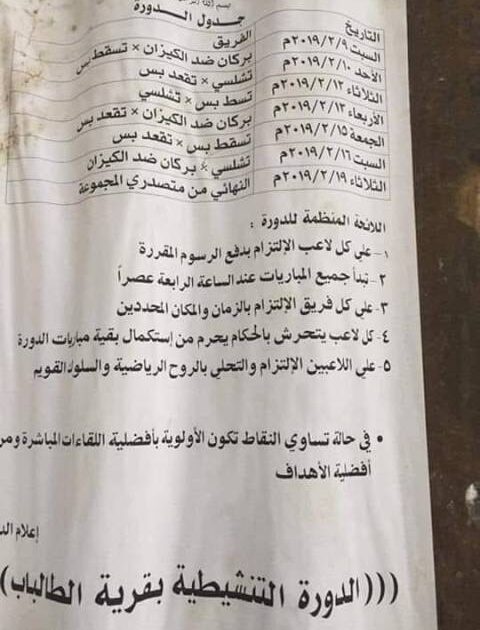 جدول الدورة
التاريخ الفريق
السبت ٢٠١٩/٢/٩م بركان ضد الكيزان × تسقط بس
الأحد ٢٠١٩/٢/١٠م تشلسي × تقعد بس
الثلاثاء ٢٠١٩/٢/١٢م تسط بس × تشلسي
الأربعاء ٢٠١٩/٢/١٣م بركان ضد الكيزان × تقعد بس
الجمعة ٢٠١٩/٢/١٥م تسقط بس × تقعد بس
السبت ٢٠١٩/٢/١٦م تشلسي × بركان ضد الكيزان
الثلاثاء ٢٠١٩/٢/١٩م النهائي من متصدري المجموعة
اللائحة المنظمة للدورة :
١- علي كل لاعب الإلتزام بدفع الرسوم المقررة
٢- تبدأ جميع المباريات عند الساعة الرابعة عصراً
٣- علي كل فريق الإلتزام بالزمان والمكان المحددين
٤- كل لاعب يتحرش بالحكام يحرم من إستكمال بقية مباريات الدورة
٥- علي اللاعبين الإلتزام والتحلي بالروح الرياضية والسلوك القويم
• في حالة تساوي النقاط تكون الأولوية بأفضلية اللقاءات المباشرة
أفضلية الأهداف
إعلام
(((الدورة التنشيطية بقرية الطالباب)